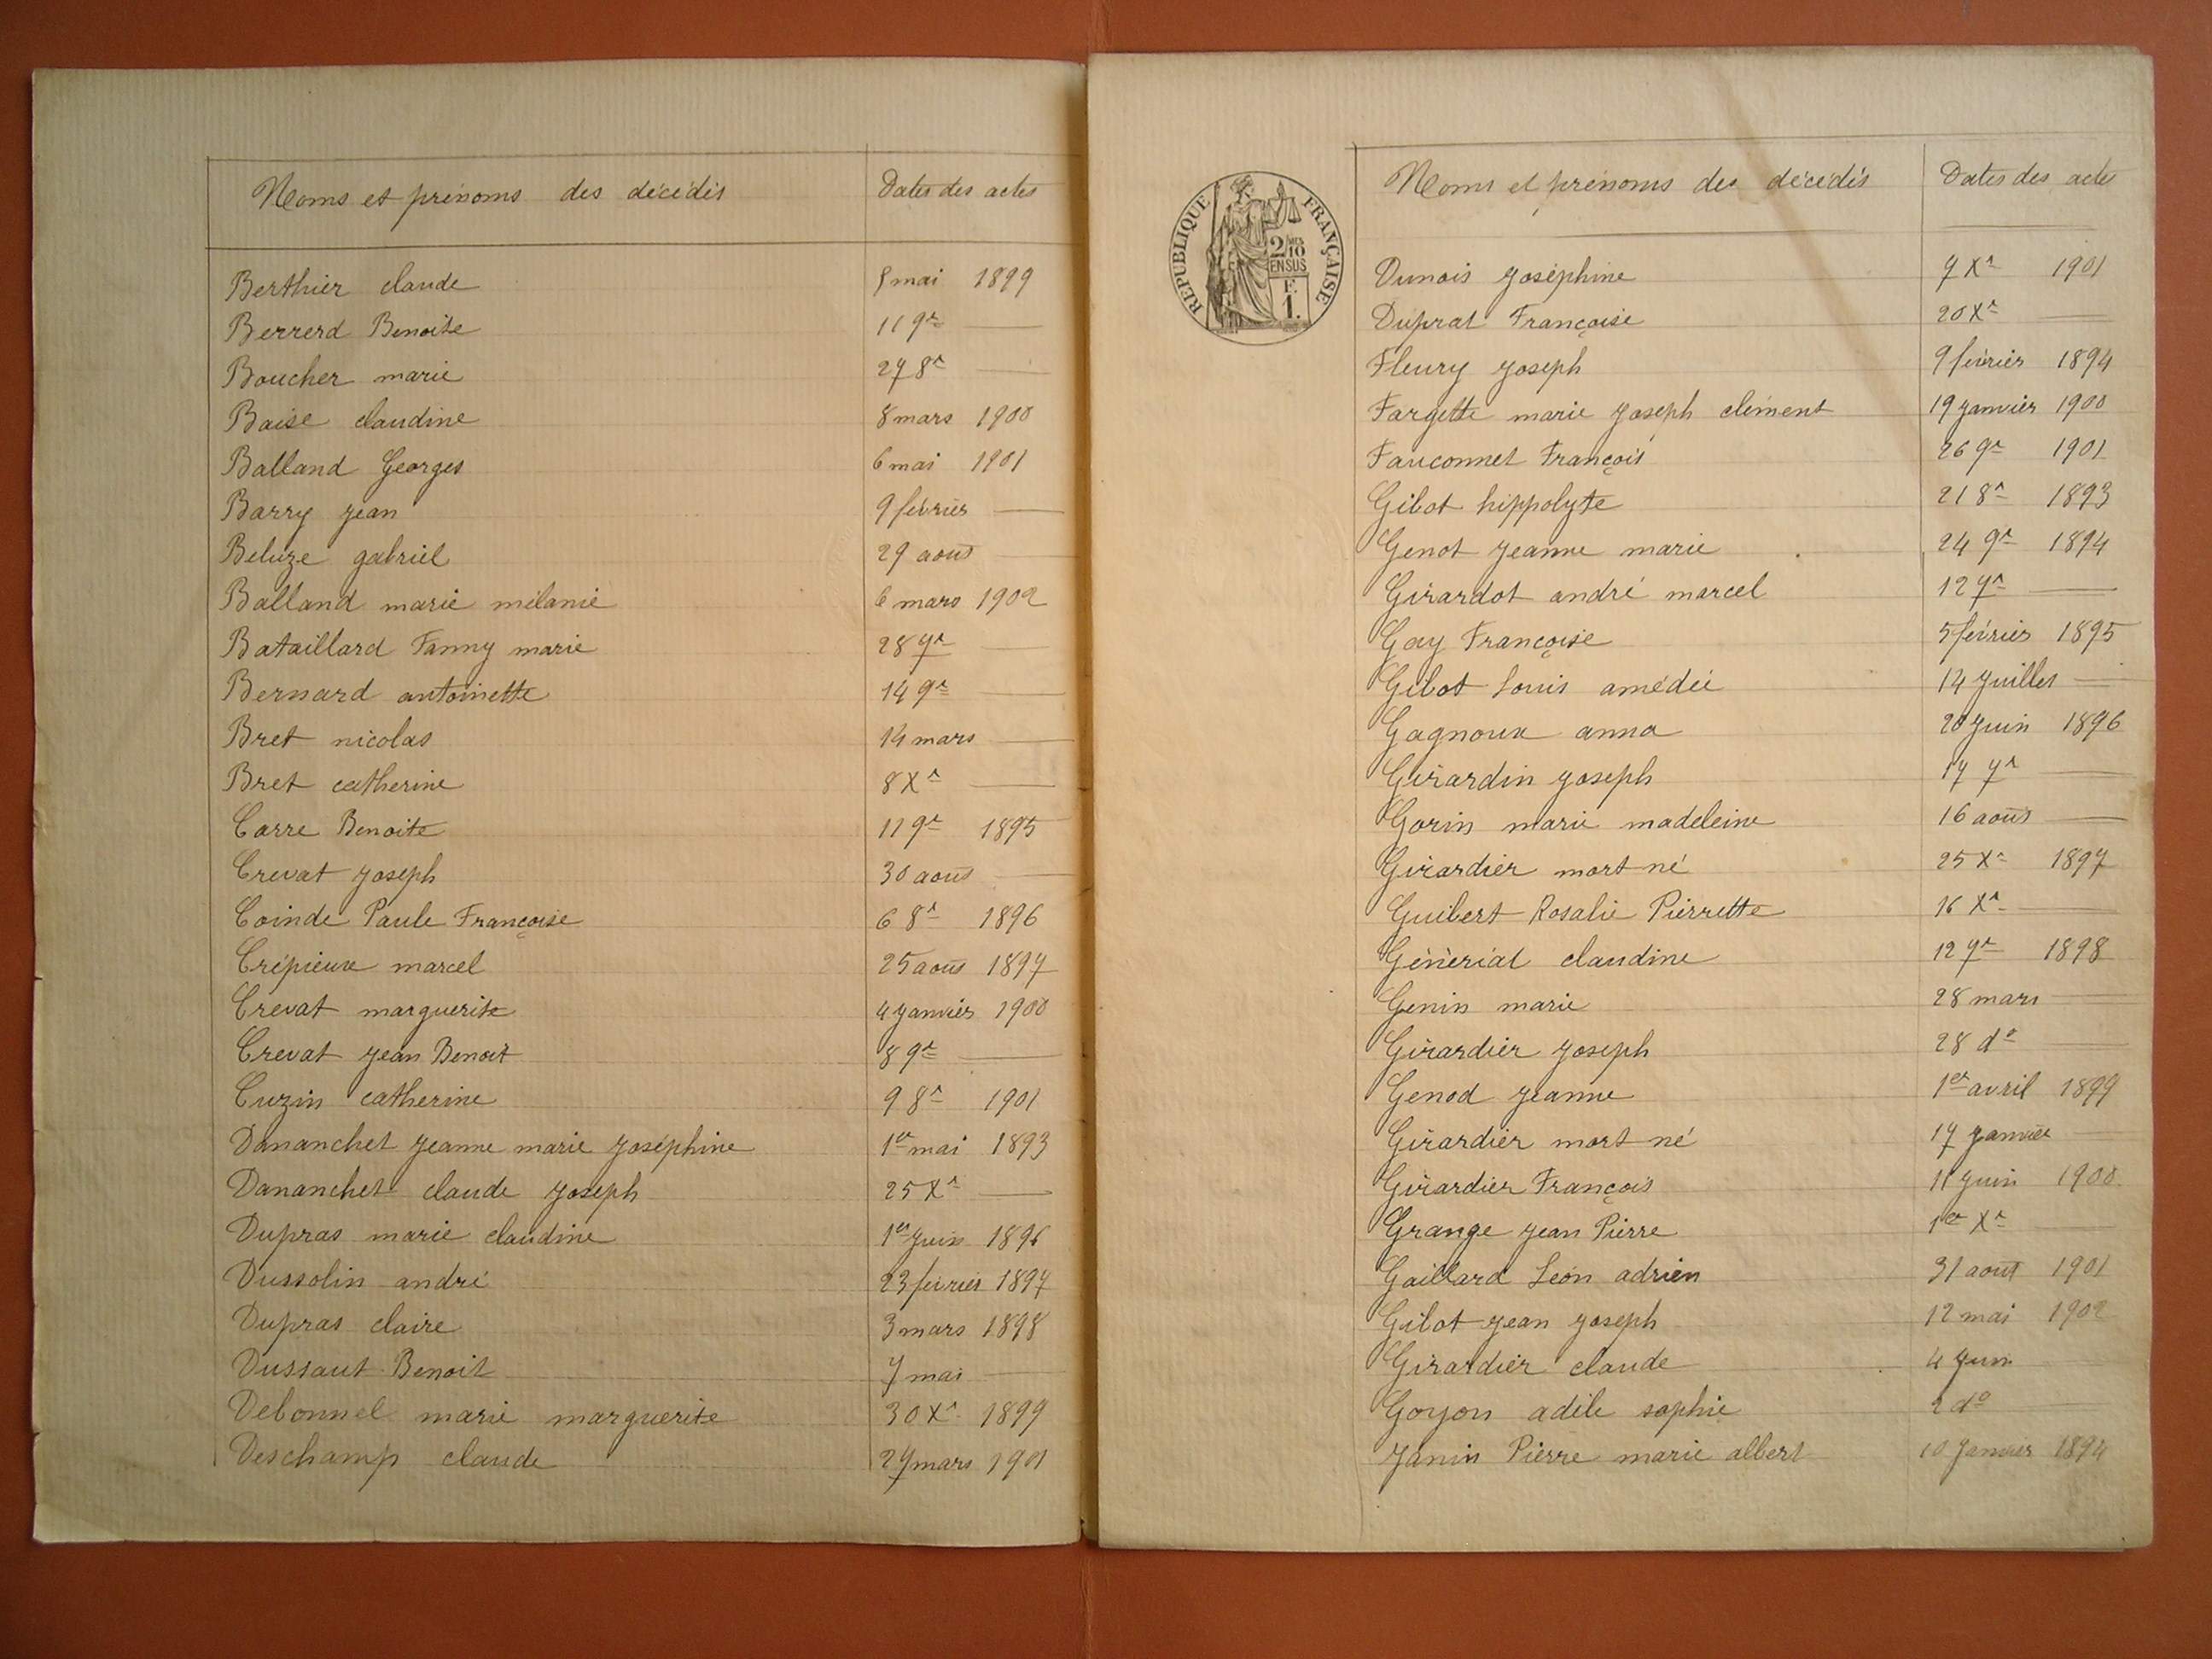 Noms et prénoms des décédés Dates des actes
Berthier claude mai 1899
Berrerd Benoite 11 9re
Boucher marie 27 8re
Baise claudine 8 mars 1900
Balland Georges 6 mai 1901
Barry jean 9 février
Beluze gabriel 29 août
Balland marie mélanie 6 mars 1902
Bataillard Fanny marie 28 7re
Bernard antoinette 14 9re
Bret nicolas 14 mars
Bret catherine 8 Xre
Carre Benoite 11 9re 1895
Crevat joseph 30 août
Coinde Paule Françoise 6 8re 1896
Crépieux marcel 25 août 1897
Crevat marguerite 4 janvier 1900
Crevat jean Benoit 8 9re
Cuzin catherine 9 8re 1901
Dananchet jeanne marie joséphine 1er mai 1893
Dananchet claude joseph 25 Xre
Dupras marie claudine 1er juin 1896
Dussolin andré 23 février 1897
Dupras claire 3 mars 1898
Dussaut Benoit 7 mai
Debonnel marie marguerite 30 Xre 1899
Deschamp claude 27 mars 1901
RÉPUBLIQUE FRANÇAISE
2/10
EN SUS
F.
1.
Noms et prénoms des décédés Dates des actes
Dunois joséphine 7 Xre 1901
Duprat Françoise 20 Xre
Fleury joseph 9 février 1894
Fargette marie joseph clément 19 janvier 1900
Fauconnet François 26 9re 1901
Gibot hippolyte 21 8re 1893
Genot jeanne marie 24 9re 1894
Girardot andré marcel 12 7re
Gay Françoise 5 février 1895
Gibot Louis amédée 14 juillet
Gagnoux anna 20 juin 1896
Girardin joseph 17 7re
Gorin marie madeleine 16 août
Girardier mort né 25 Xre 1897
Guibert Rosalie Pierrette 16 Xre
Génériat claudine 12 7re 1898
Genin marie 28 mars
Girardier joseph 28 do
Genod jeanne 1er avril 1899
Girardier mort né 17 janvier
Girardier François 11 juin 1900
Grange jean Pierre 1er Xre
Gaillard Léon adrien 31 août 1901
Gibot jean joseph 12 mai 1902
Girardier claude 4 juin
Goyon adèle sophie 2 do
Janin Pierre marie albert 10 janvier 1894